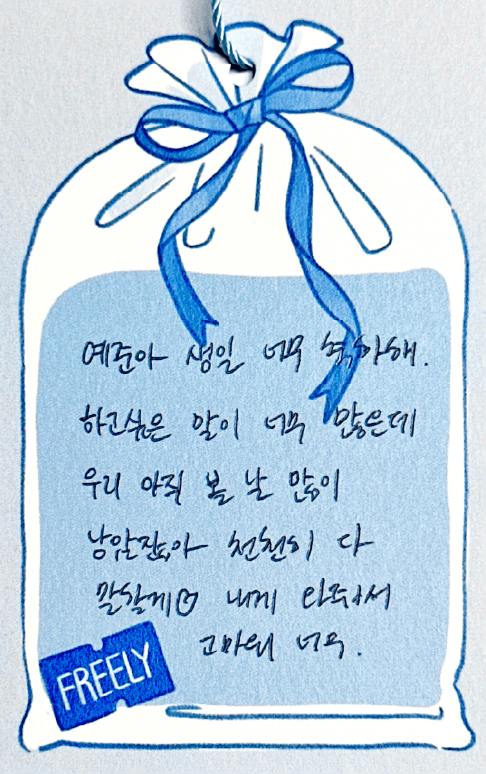 예준아 생일 너무 축하해.
하고싶은 말이 너무 많은데
우리 아직 볼 날 많이
남았잖아 천천히 다
말할게♡ 내게 와줘서
고마워 너무.
FREELY